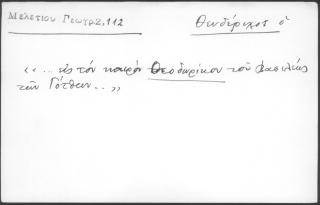 Μελετίου Γεωγρ., 112
Θευδέριχος ὁ
«... εἰς τὸν καιρὸν Θεοδωρίκου τοῦ βασιλέως
τῶν Γότθων...»